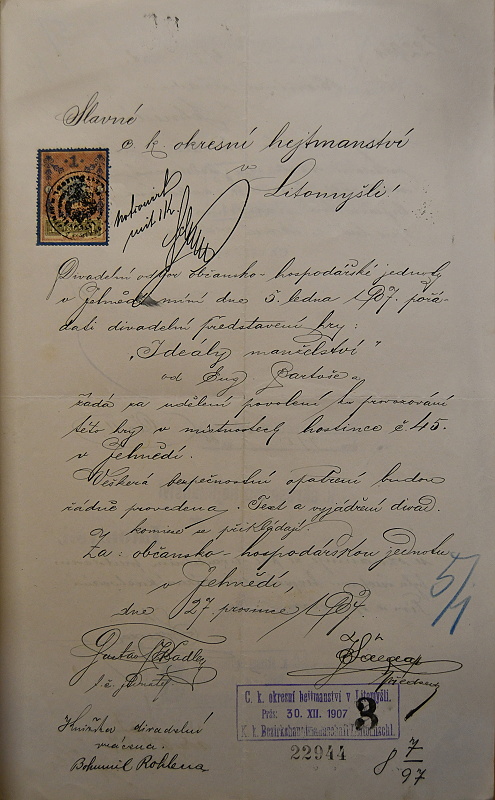 Slavné
c. k. okresní hejtmanství
v
Litomyšli!
1
Divadelní odbor občansko-hospodářské jednoty
v Jehnědí míní dne 5. ledna 1907. pořá-
dati divadelní představení hry:
„Ideály manželství"
od Eug Bartoše a
žádá za udělení povolení ku provozování
této hry v místnostech hostince č 45.
v Jehnědí.
Veškerá bezpečnostní opatření budou
řádně provedena. Text a vyjádření divad.
komise se přikládají.
Za: občansko-hospodářskou jednotu
v Jehnědí,
dne 27. prosince 1907.
5/1
Gustav
t. č.
předseda
C. k. okresní hejtmanství v Litomyšli.
Präs: 30. XII. 1907
3
K. k. Bezirkshauptmannschaft Leitomischl.
22944
Knížka divadelní
vrácena.
Bohumil Rohlena
8 7/97